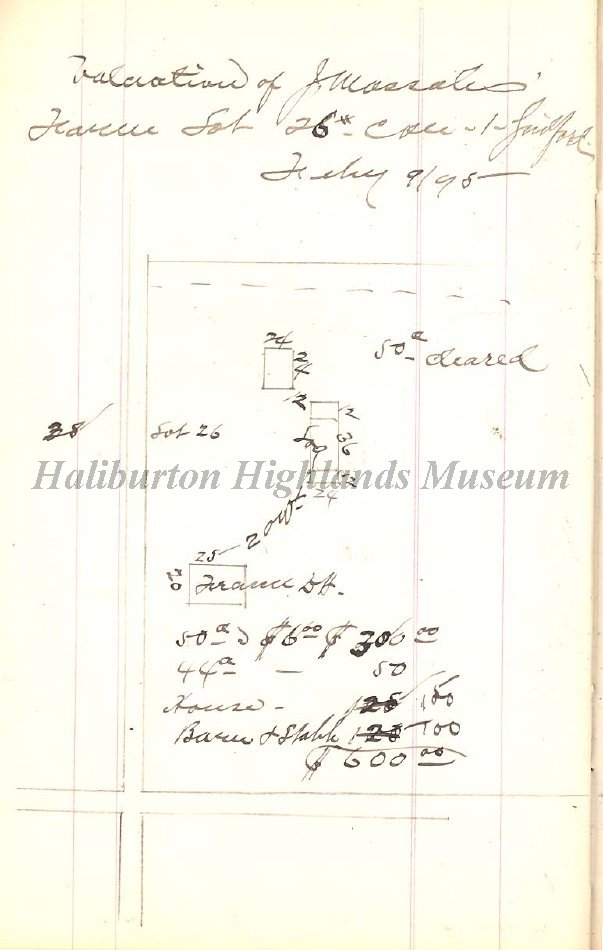 Valuation of J. Massales'
Farm Lot 26 Con - 1 - Guilford.
Feby 9/95
24
24
50 a cleared
12
12
36
38
Lot 26
Log
Haliburton Highlands Museum
12
24
12
20 Wt
25
20
Frame D H.
50 a @ $6 00 $ 300 00
44 a — 50
House - 125 150
Barn & Stable 125 100
$ 600 00